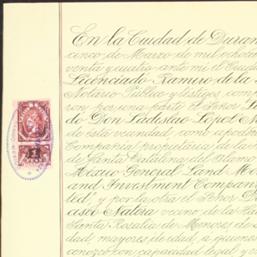 En la Ciudad de Duran
cinco de Marzo de mil ochoc
venta y cuatro ante mi el Ciuda
Licenciado Ramiro de la
Notario Público y testigos comp
ron por una parte el Señor
de Don Ladislao López N
de esta vecindad, como apod
Compañía propietaria de la
de Santa Catalina del Alamo
Mexico General Land Mo
and Investment Compan
ted, y por la otra el Señor
vecino de la
Santa Rosalia de
dad, mayores de edad, a quienes
conozco con capacidad legal y